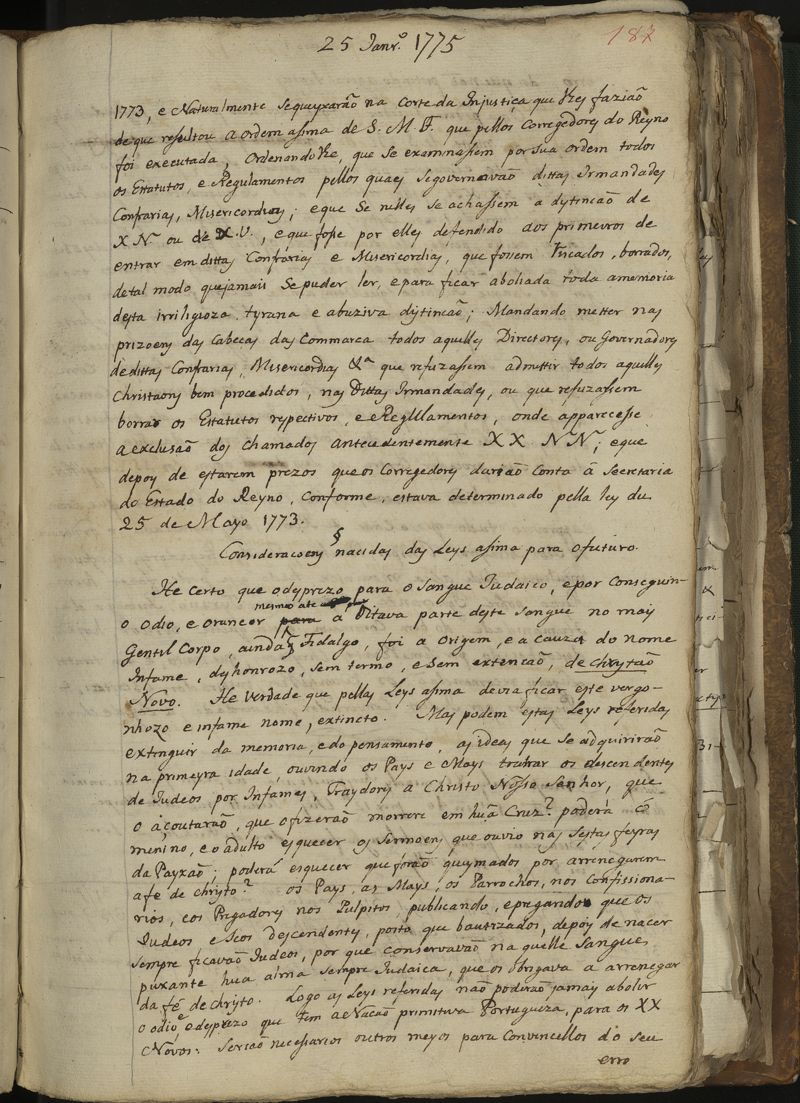 25 Janr.º 1775
187
1773, e Naturalmente Sequeyxarão na Corte da Injustica que lhes fazião
de que resultou a ordem asima de S. M. F. que pellos Corregedores do Reyno
foi executada, Ordenandolhe, que Se examinassem por Sua ordem todos
os Estatutos, e Regulamentos pellos quaes Segovernavão dittas Irmandades
Confrarias, Misericordias; e que Se nelles se achassem a dystincão de
X N.ˢ ou de X.V., e que fosse por elles defendido aos primeyros de
entrar em dittas Confrarias e Misericordias, que fossem riscados, borrados,
de tal modo, que jamais Se puder ler, e para ficar aboliada toda a memoria
desta irriligioza, tyrana e abuziva dystincaõ; Mandando metter nas
prizoens das Cabecas das Commarca todos aquelles Directores, ou Governadores
de dittas Confrarias, Misericordias &ª que refuzassem admittir todos aquelles
Christaons bem procedidos, nas Dittas Irmandades, ou que refuzassem
borrar os Estatutos respectivos, e Regullamentos, onde apparecesse
a exclusão dos chamados antecedentemente X X N N; e que
depoys de estarem prezos que os Corregedores darião Conta â Secretaria
do Estado do Reyno, Conforme, estava determinado pella ley du
25 de Mayo 1773.
§
Consideracoens nacidas das Leys asima para o futuro.
He Certo que o desprezo para o Sangue Judaico, e por Conseguin-
o Odio, e orancor para mesmo ate á Oitava parte deste Sangue no mais
Gentil Corpo, ainda Fidalgo, foi a Origem, e a Cauza do nome
Infame, deshonrozo, sem termo, e Sem extencaõ, de Chrystaõ
Novo. He verdade que pellas Leys asima devia ficar este vergo-
nhozo e infame nome, extincto. Mas podem estas Leys referidas
extinguir da memoria, e do pensamento, as ideas que Se adquirirão
na primeyra idade, ouvindo os Pays e Mays tratar os descendentes
de Judeos por Infames, Traydores a Christo Nosso Senhor, que
o açoutarão, que o fizerão morrer em huã Cruz? poderá o
menino, e o adulto esquecer os Sermoens que ouvio nas Sestas feyras
da Payxaõ; poderá esquecer que forão queymados por arrenegarem
a fe de Chrysto? os Pays, as Mays, os Parrochos, nos Confissiona-
rios, e os Pregadores nos Pulpitos publicando, e pregando que os
Judeos e Seos descendentes, posto que bautizados, depoys de nacer
sempre ficavaõ Judeos, por que conservavaõ naquelle Sangue
puxante hua alma sempre Judaica, que os obrigava a arrenegar
da fé de Chrysto. Logo as Leys referidas não poderão jamays abolir
o odio, e desprezo que tem a Nacaõ primitiva Portugueza, para os XX
Novos. Serião necessarios outros meyos para Convincellos do Seu
erro